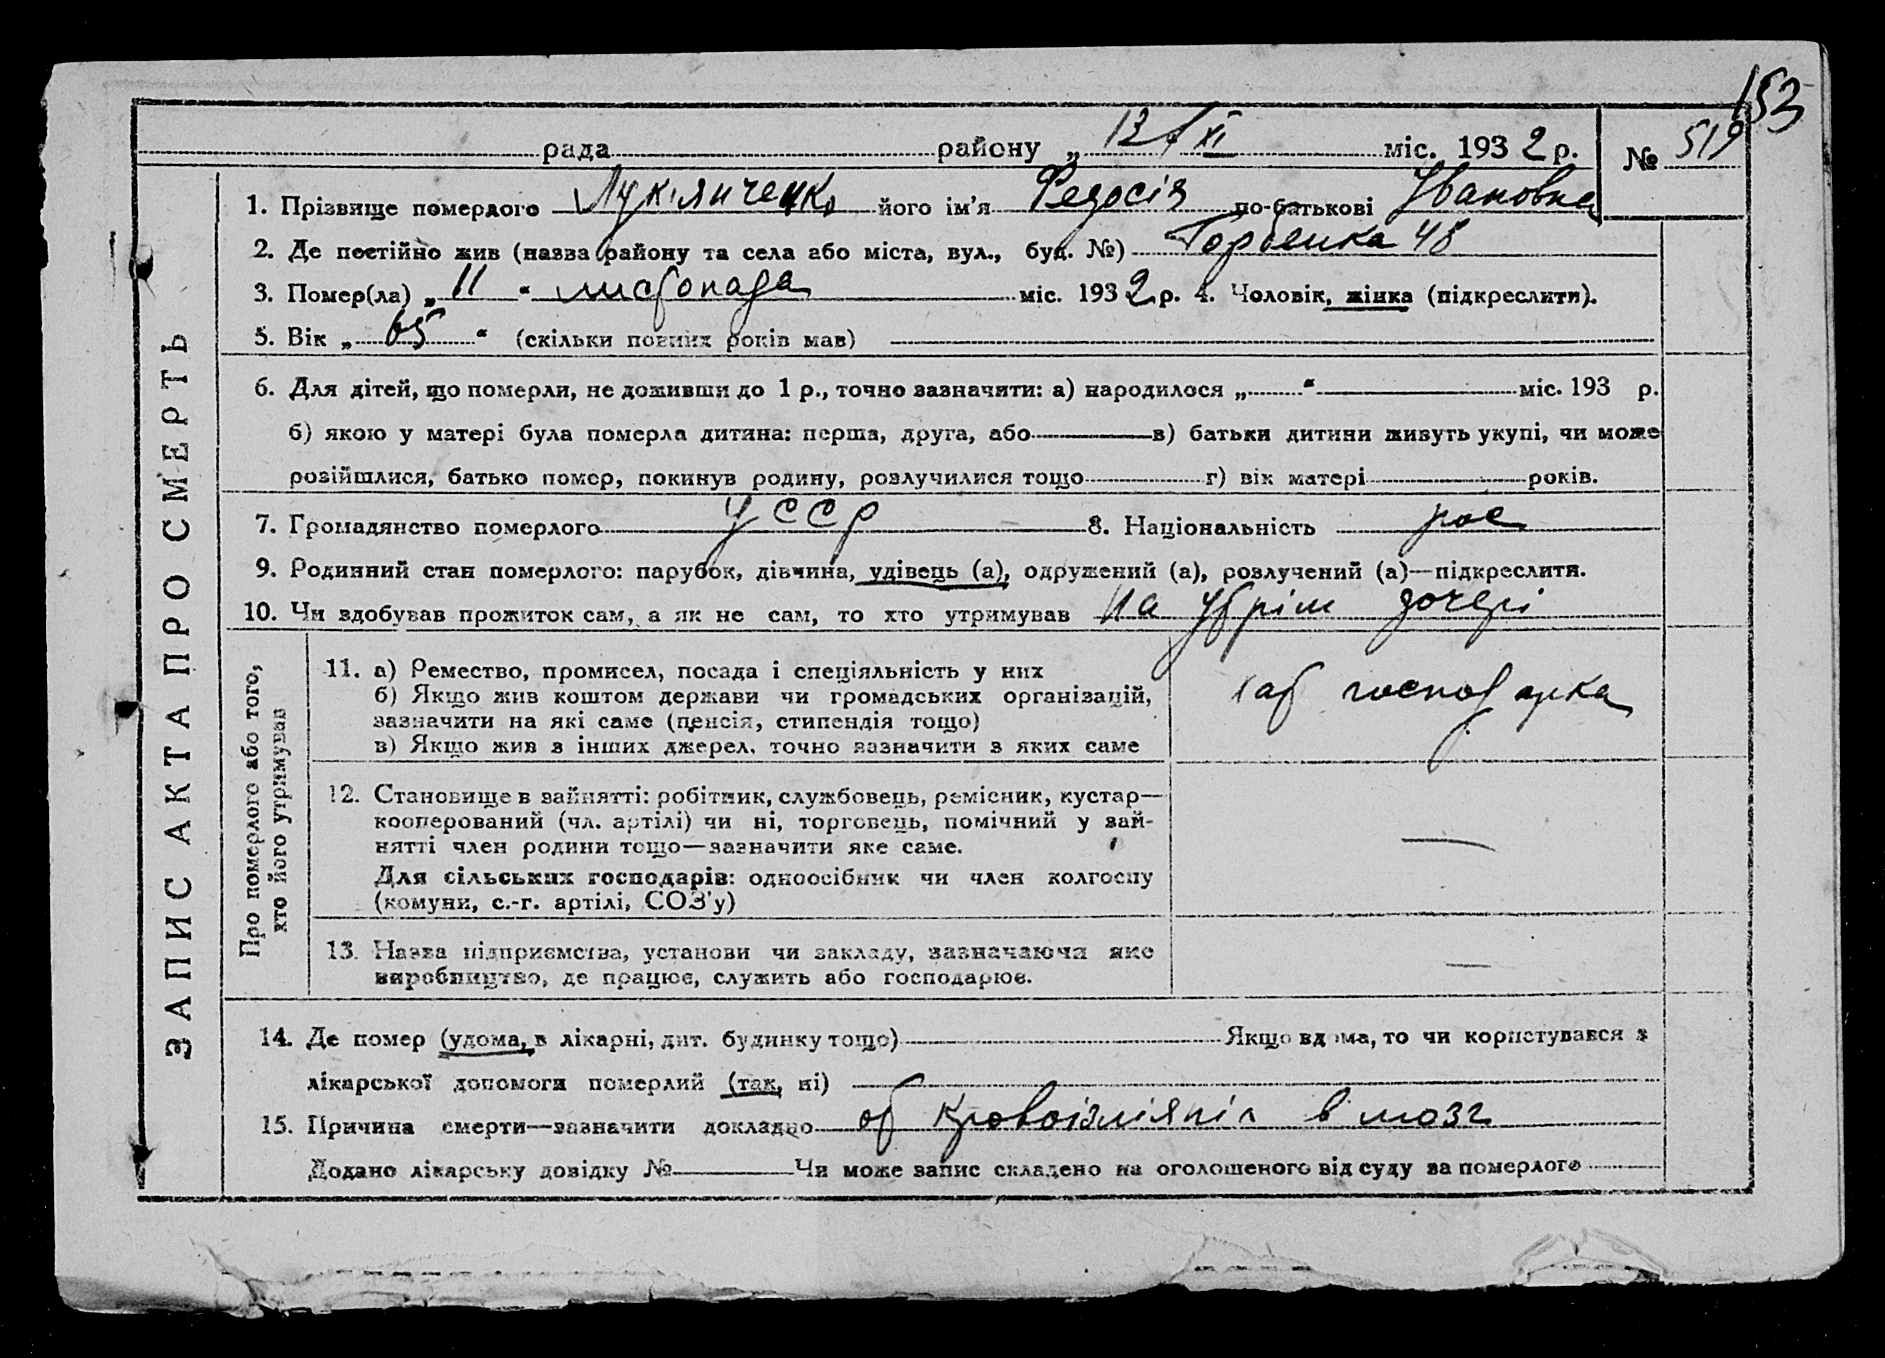 153
рада району „ 12/XI міс. 1932 р. № 519
1. Прізвище померлого Лукіянченко його ім'я Федосія по-батькові Івановна
2. Де постійно жив (назва району та села або міста, вул., буд. №) Горбенка 48
3. Помер(ла) „ 11 " листопада міс. 1932 р. 4. Чоловік, жінка (підкреслити).
5. Вік „ 65 " (скільки повних років мав)
6. Для дітей, що померли, не доживши до 1 р., точно зазначити: а) народилося „ " міс. 193 р.
б) якою у матері була померла дитина: перша, друга, або в) батьки дитини живуть укупі, чи може
розійшлися, батько помер, покинув родину, розлучилися тощо г) вік матері років.
7. Громадянство померлого УССР 8. Національність рос
9. Родинний стан померлого: парубок, дівчина, удівець (а), одружений (а), розлучений (а)—підкреслити.
10. Чи здобував прожиток сам, а як не сам, то хто утримував На утрім дочері
ЗАПИС АКТА ПРО СМЕРТЬ
Про померлого або того,
хто його утримував
11. а) Ремество, промисел, посада і спеціяльність у них
б) Якщо жив коштом держави чи громадських організацій,
зазначити на які саме (пенсія, стипендія тощо)
в) Якщо жив з інших джерел, точно зазначити з яких саме
хат господарка
12. Становище в зайнятті: робітник, службовець, ремісник, кустар—
кооперований (чл. артілі) чи ні, торговець, помічний у зай-
нятті член родини тощо—зазначити яке саме.
Для сільських господарів: одноосібник чи член колгоспу
(комуни, с.-г. артілі, СОЗ'у)
—
13. Назва підприємства, установи чи закладу, зазначаючи яке
виробництво, де працює, служить або господарює.
—
14. Де помер (удома, в лікарні, дит. будинку тощо) Якщо вдома, то чи користувався з
лікарської допомоги померлий (так, ні)
15. Причина смерти—зазначити докладно от кровоізліянія в мозг
Додано лікарську довідку № Чи може запис складено на оголошеного від суду за померлого